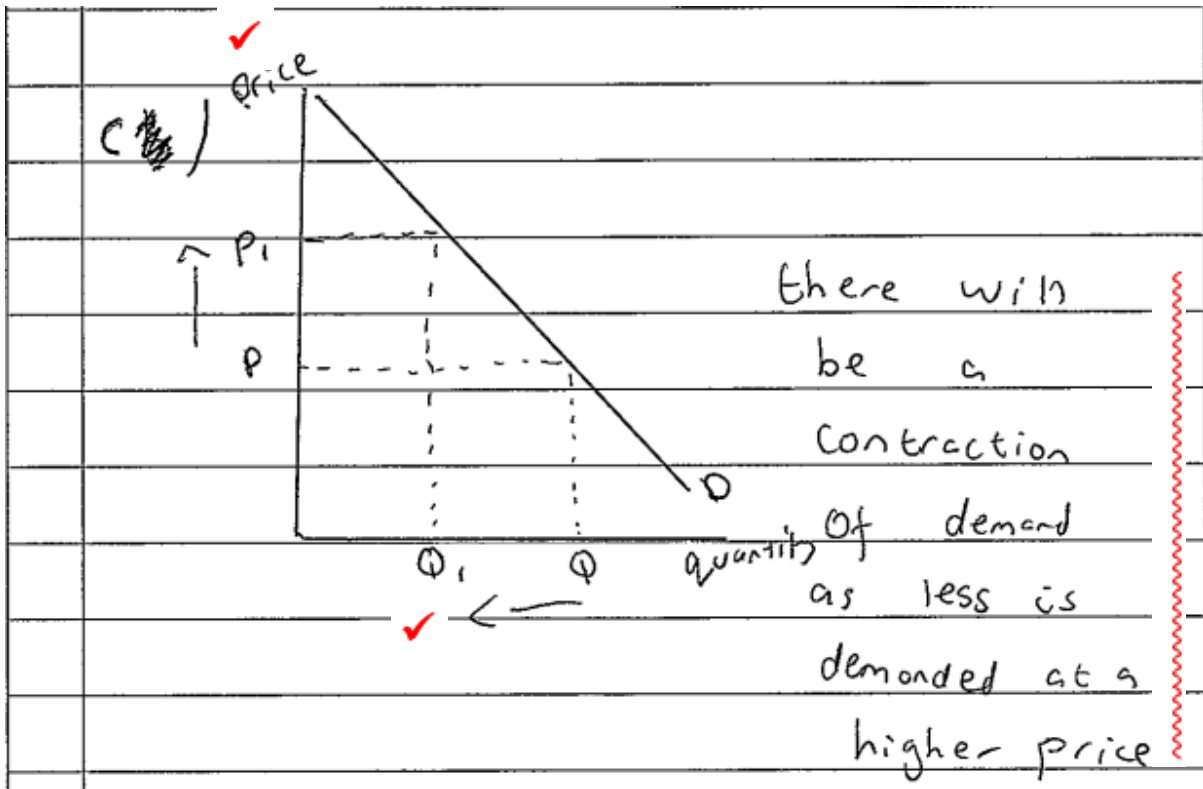 price
P1
P
D
Q1
Q
quantity
there will
be a
contraction
of demand
as less is
demanded at a
higher price